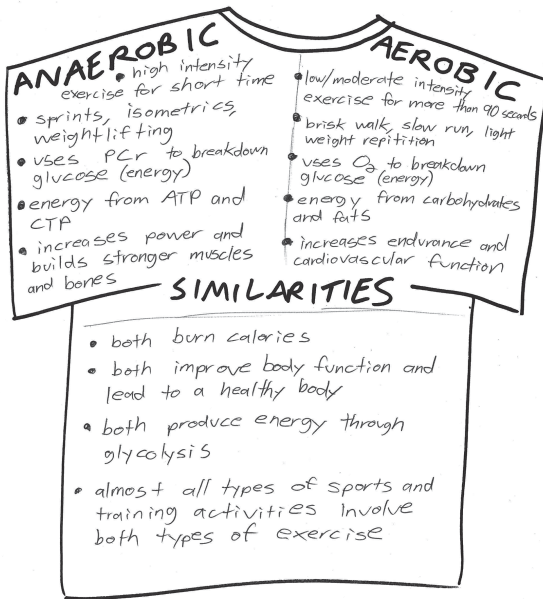 ANAEROBIC
• high intensity
exercise for short time
• sprints, isometrics,
weightlifting
• uses PCr to breakdown
glucose (energy)
• energy from ATP and
CTP
• increases power and
builds stronger muscles
and bones
AEROBIC
• low/moderate intensity
exercise for more than 90 seconds
• brisk walk, slow run, light
weight repitition
• uses O₂ to breakdown
glucose (energy)
• energy from carbohydrates
and fats
• increases endurance and
cardiovascular function
SIMILARITIES
• both burn calories
• both improve body function and
lead to a healthy body
• both produce energy through
glycolysis
• almost all types of sports and
training activities involve
both types of exercise